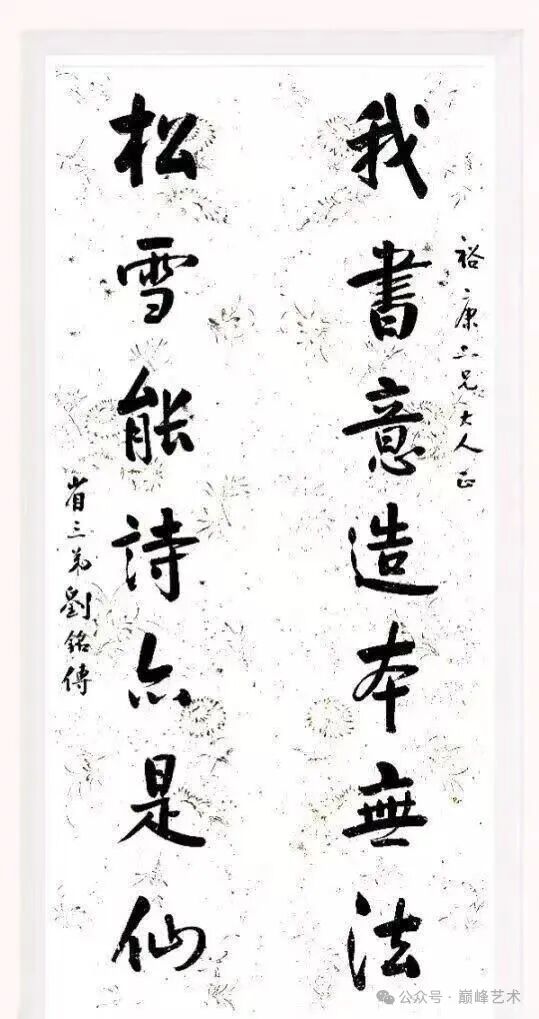 裕康三兄大人正
我書意造本無法
松雪能詩亦是仙
省三弟劉銘傳
公众号·巅峰艺术